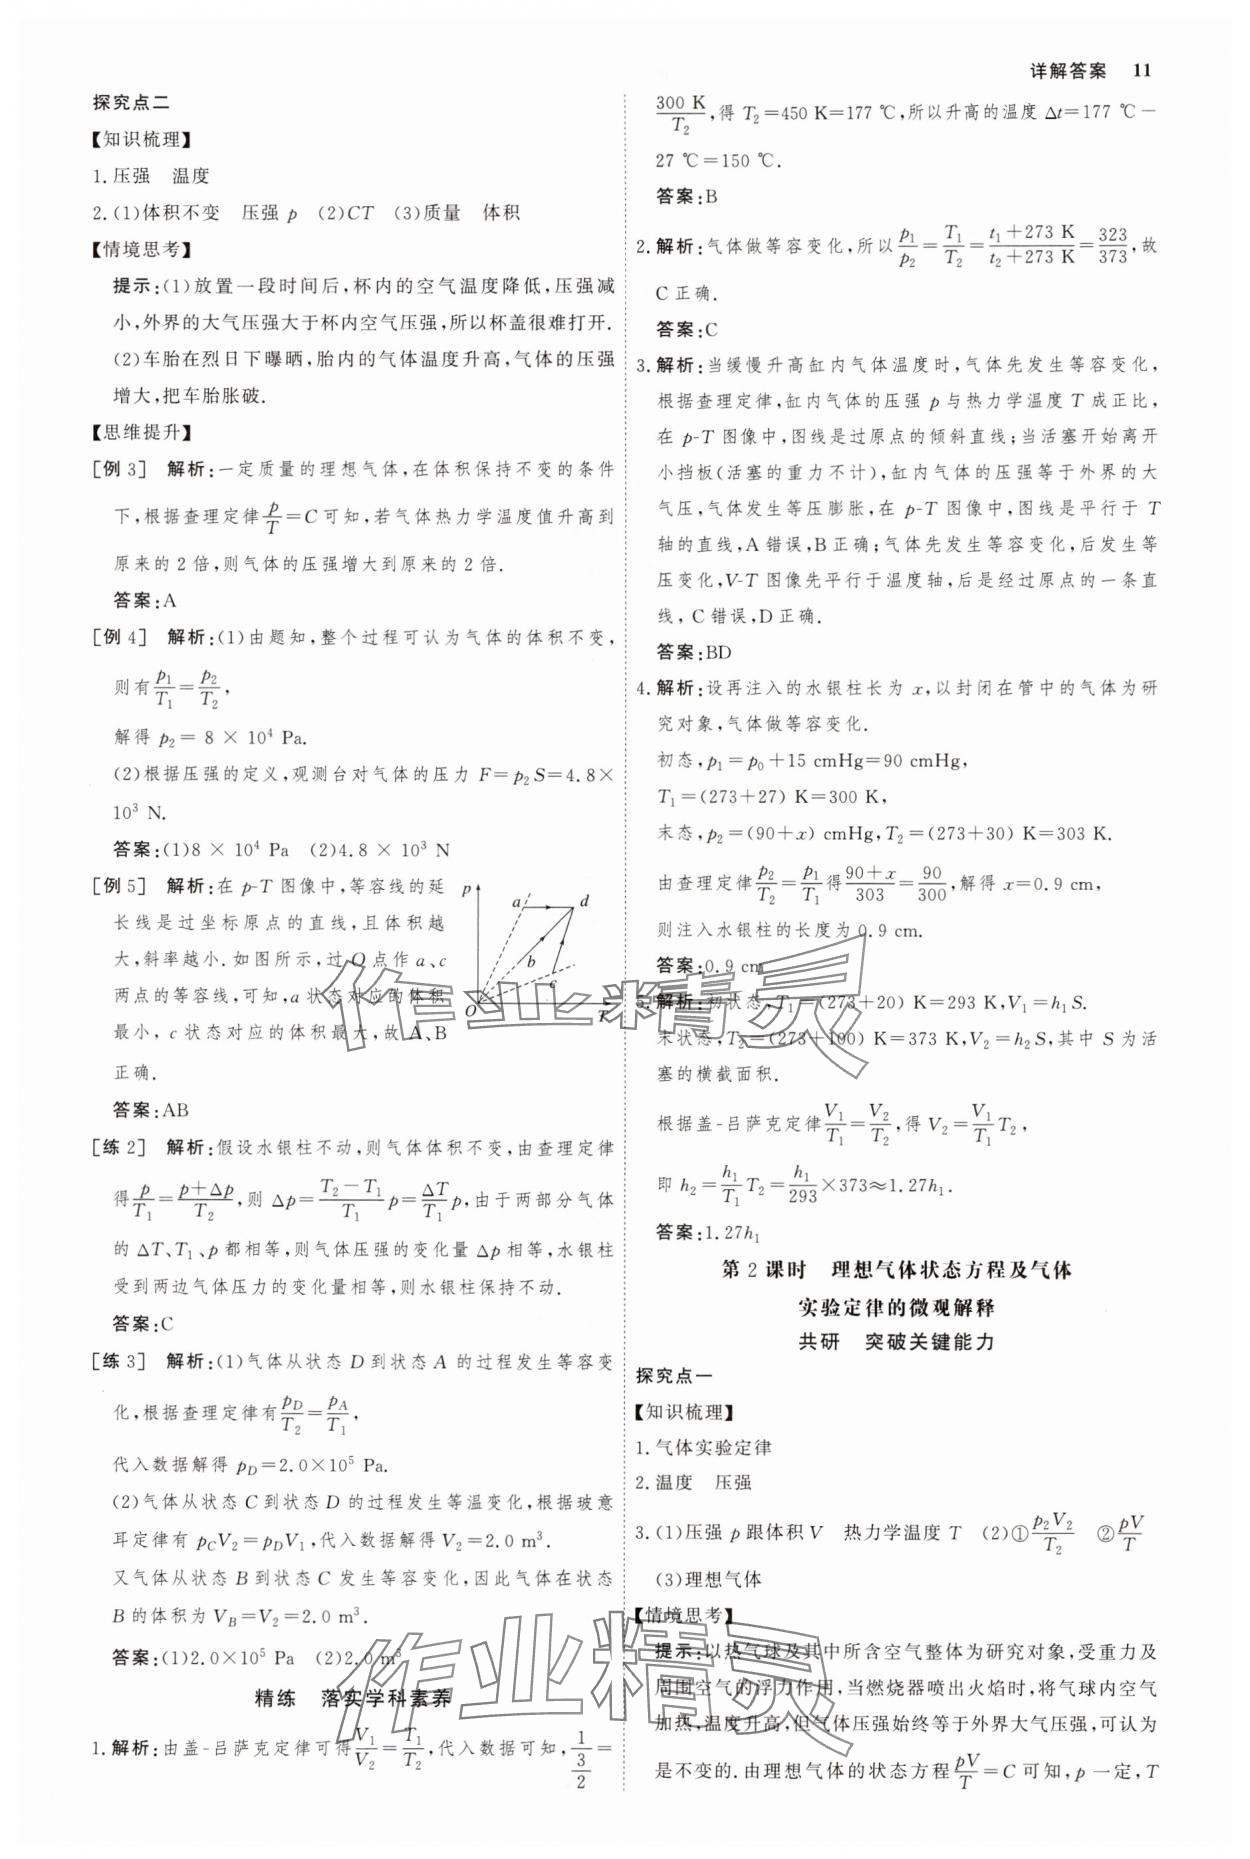 详解答案 11
探究点二
【知识梳理】
1.压强 温度
2.(1)体积不变 压强 p (2)CT (3)质量 体积
【情境思考】
提示:(1)放置一段时间后,杯内的空气温度降低,压强减
小,外界的大气压强大于杯内空气压强,所以杯盖很难打开.
(2)车胎在烈日下曝晒,胎内的气体温度升高,气体的压强
增大,把车胎胀破.
【思维提升】
[例 3] 解析:一定质量的理想气体,在体积保持不变的条件
下,根据查理定律p/T=C可知,若气体热力学温度值升高到
原来的 2 倍,则气体的压强增大到原来的 2 倍.
答案:A
[例 4] 解析:(1)由题知,整个过程可认为气体的体积不变,
则有p₁/T₁=p₂/T₂,
解得 p₂= 8 × 10⁴ Pa.
(2)根据压强的定义,观测台对气体的压力 F=p₂S=4.8×
10³ N.
答案:(1)8 × 10⁴ Pa (2)4.8 × 10³ N
[例 5] 解析:在 p-T 图像中,等容线的延
长线是过坐标原点的直线,且体积越
大,斜率越小.如图所示,过 O 点作 a、c
两点的等容线,可知,a 状态对应的体积
最小,c 状态对应的体积最大,故 A、B
正确.
p a d b c O T
答案:AB
[练 2] 解析:假设水银柱不动,则气体体积不变,由查理定律
得p/T₁=(p+Δp)/T₂,则 Δp=(T₂−T₁)/T₁ p=ΔT/T₁ p,由于两部分气体
的 ΔT、T₁、p 都相等,则气体压强的变化量 Δp 相等,水银柱
受到两边气体压力的变化量相等,则水银柱保持不动.
答案:C
[练 3] 解析:(1)气体从状态 D 到状态 A 的过程发生等容变
化,根据查理定律有p_D/T₂=p_A/T₁,
代入数据解得 p_D=2.0×10⁵ Pa.
(2)气体从状态 C 到状态 D 的过程发生等温变化,根据玻意
耳定律有 p_CV₂=p_DV₁,代入数据解得 V₂=2.0 m³.
又气体从状态 B 到状态 C 发生等容变化,因此气体在状态
B 的体积为 V_B=V₂=2.0 m³.
答案:(1)2.0×10⁵ Pa (2)2.0 m³
精练 落实学科素养
1.解析:由盖-吕萨克定律可得V₁/V₂=T₁/T₂,代入数据可知,1/(3/2)=
300 K/T₂,得 T₂=450 K=177 ℃,所以升高的温度 Δt=177 ℃−
27 ℃=150 ℃.
答案:B
2.解析:气体做等容变化,所以p₁/p₂=T₁/T₂=(t₁+273 K)/(t₂+273 K)=323/373,故
C 正确.
答案:C
3.解析:当缓慢升高缸内气体温度时,气体先发生等容变化,
根据查理定律,缸内气体的压强 p 与热力学温度 T 成正比,
在 p-T 图像中,图线是过原点的倾斜直线;当活塞开始离开
小挡板(活塞的重力不计),缸内气体的压强等于外界的大
气压,气体发生等压膨胀,在 p-T 图像中,图线是平行于 T
轴的直线,A 错误,B 正确;气体先发生等容变化,后发生等
压变化,V-T 图像先平行于温度轴,后是经过原点的一条直
线,C 错误,D 正确.
答案:BD
4.解析:设再注入的水银柱长为 x,以封闭在管中的气体为研
究对象,气体做等容变化.
初态,p₁=p₀+15 cmHg=90 cmHg,
T₁=(273+27) K=300 K,
末态,p₂=(90+x) cmHg,T₂=(273+30) K=303 K.
由查理定律p₂/T₂=p₁/T₁得(90+x)/303=90/300,解得 x=0.9 cm,
则注入水银柱的长度为 0.9 cm.
答案:0.9 cm
5.解析:初状态,T₁=(273+20) K=293 K,V₁=h₁S.
末状态,T₂=(273+100) K=373 K,V₂=h₂S,其中 S 为活
塞的横截面积.
根据盖-吕萨克定律V₁/T₁=V₂/T₂,得 V₂=V₁/T₁ T₂,
即 h₂=h₁/T₁ T₂=h₁/293×373≈1.27h₁.
答案:1.27h₁
第 2 课时 理想气体状态方程及气体
实验定律的微观解释
共研 突破关键能力
探究点一
【知识梳理】
1.气体实验定律
2.温度 压强
3.(1)压强 p 跟体积 V 热力学温度 T (2)①p₂V₂/T₂ ②pV/T
(3)理想气体
【情境思考】
提示:以热气球及其中所含空气整体为研究对象,受重力及
周围空气的浮力作用,当燃烧器喷出火焰时,将气球内空气
加热,温度升高,但气体压强始终等于外界大气压强,可认为
是不变的.由理想气体的状态方程pV/T=C 可知,p 一定,T
作业精灵
作业精灵